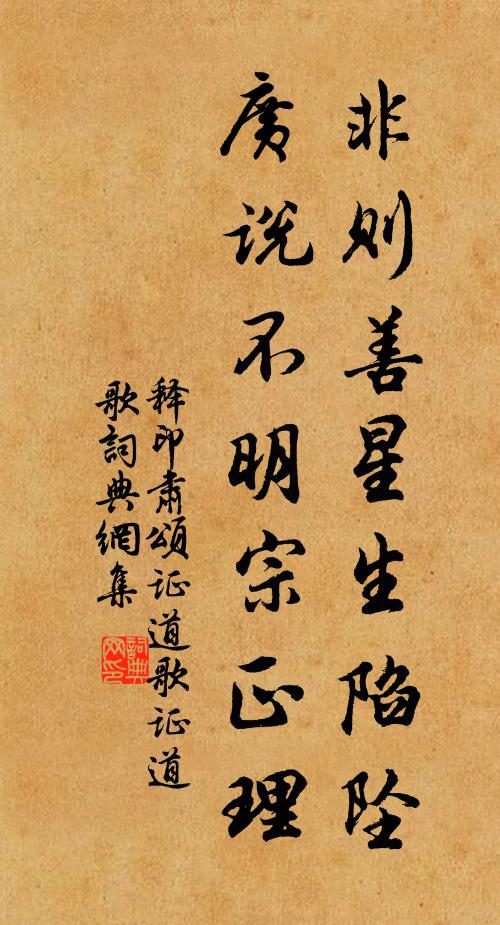 非则善星生陷坠
广说不明宗正理
释印肃颂证道歌证道
歌词典网集
词典
网印